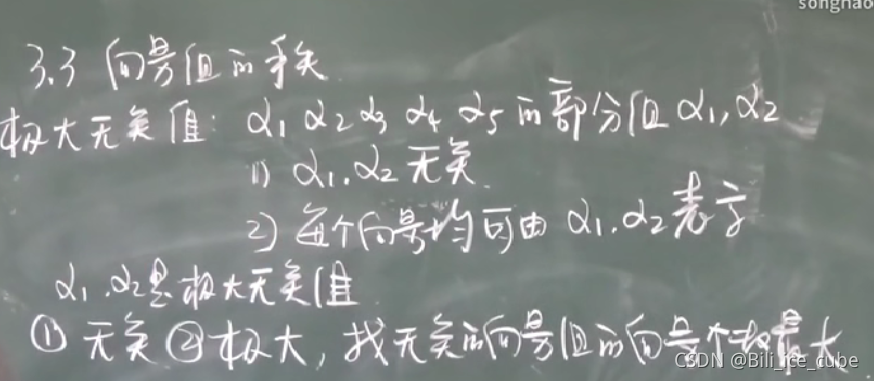 songhao
3.3 向量组的秩
极大无关组: α1 α2 α3 α4 α5 的部分组 α1,α2
1) α1.α2 无关.
2) 每个向量均可由 α1.α2 表示
α1.α2是极大无关组
① 无关 ②极大, 找无关的向量组的向量个数最大
CSDN @Bili_ice_cube